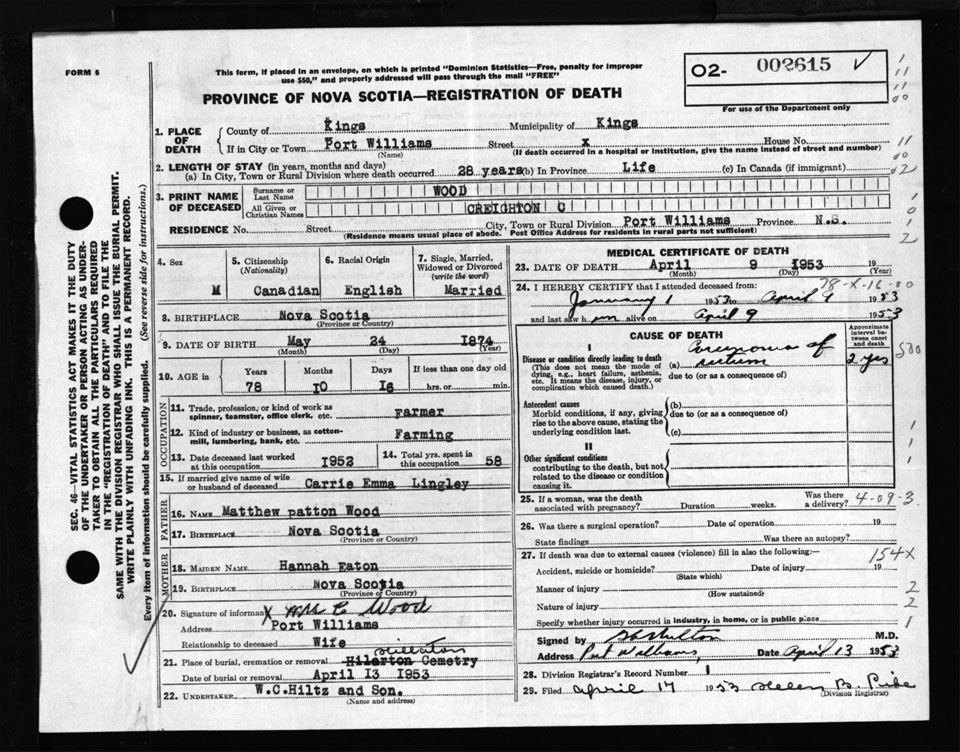 FORM 6
This form, if placed in an envelope, on which is printed "Dominion Statistics—Free, penalty for improper
use $50," and properly addressed will pass through the mail "FREE"
PROVINCE OF NOVA SCOTIA—REGISTRATION OF DEATH
O2- 002615
For use of the Department only
SEC. 46—VITAL STATISTICS ACT MAKES IT THE DUTY
OF THE UNDERTAKER OR PERSON ACTING AS UNDER-
TAKER TO OBTAIN ALL THE PARTICULARS REQUIRED
IN THE "REGISTRATION OF DEATH" AND TO FILE THE
SAME WITH THE DIVISION REGISTRAR WHO SHALL ISSUE THE BURIAL PERMIT.
WRITE PLAINLY WITH UNFADING INK. THIS IS A PERMANENT RECORD.
Every item of information should be carefully supplied. (See reverse side for instructions.)
1. PLACE OF DEATH
County of Kings Municipality of Kings
If in City or Town Port Williams Street X House No.
(Name) (If death occurred in a hospital or institution, give the name instead of street and number)
2. LENGTH OF STAY (in years, months and days)
(a) In City, Town or Rural Division where death occurred 28 years (b) In Province Life (c) In Canada (if immigrant)
3. PRINT NAME OF DECEASED
Surname or Last Name WOOD
All Given or Christian Names CREIGHTON C
RESIDENCE No. Street City, Town or Rural Division Port Williams Province N.S.
(Residence means usual place of abode. Post Office Address for residents in rural parts not sufficient)
4. Sex
M
5. Citizenship (Nationality)
Canadian
6. Racial Origin
English
7. Single, Married, Widowed or Divorced (write the word)
Married
8. BIRTHPLACE Nova Scotia
(Province or Country)
9. DATE OF BIRTH May 24 1874
(Month) (Day) (Year)
10. AGE in Years Months Days If less than one day old
78 10 16 hrs. or min.
OCCUPATION
11. Trade, profession, or kind of work as
spinner, teamster, office clerk, etc. Farmer
12. Kind of industry or business, as cotton-
mill, lumbering, bank, etc. Farming
13. Date deceased last worked
at this occupation 1952
14. Total yrs. spent in
this occupation 58
15. If married give name of wife
or husband of deceased Carrie Emma Lingley
FATHER
16. NAME Matthew patton Wood
17. BIRTHPLACE Nova Scotia
(Province or Country)
MOTHER
18. MAIDEN NAME Hannah Eaton
19. BIRTHPLACE Nova Scotia
(Province or Country)
20. Signature of informant X Mrs C Wood
Address Port Williams
Relationship to deceased Wife
21. Place of burial, cremation or removal Hilerton Cemetry
Date of burial or removal April 13 1953
22. UNDERTAKER W.C.Hiltz and Son.
(Name and address)
MEDICAL CERTIFICATE OF DEATH
23. DATE OF DEATH April 9 1953 19
(Month) (Day) (Year)
78-X-16-00
24. I HEREBY CERTIFY that I attended deceased from:
January 1 1952 to April 9 1953
and last saw him alive on April 9 1953
CAUSE OF DEATH
Approximate interval between onset and death
I
Disease or condition directly leading to death
(This does not mean the mode of
dying, e.g., heart failure, asthenia,
etc. It means the disease, injury, or
complication which caused death.)
(a) Carcinoma of rectum 2 yrs
due to (or as a consequence of)
Antecedent causes
Morbid conditions, if any, giving
rise to the above cause, stating the
underlying condition last.
(b)
due to (or as a consequence of)
(c)
II
Other significant conditions
contributing to the death, but not
related to the disease or condition
causing it.
25. If a woman, was the death
associated with pregnancy? Duration weeks. Was there a delivery? 4-09-3
26. Was there a surgical operation? Date of operation 19
State findings Was there an autopsy?
27. If death was due to external causes (violence) fill in also the following:— 154X
Accident, suicide or homicide? Date of injury 19
(State which)
Manner of injury
(How sustained)
Nature of injury
Specify whether injury occurred in industry, in home, or in public place
Signed by M.D.
Address Port Williams, Date April 13 1953
28. Division Registrar's Record Number 1
29. Filed April 17 1953 Helen B. Pride
(Division Registrar)